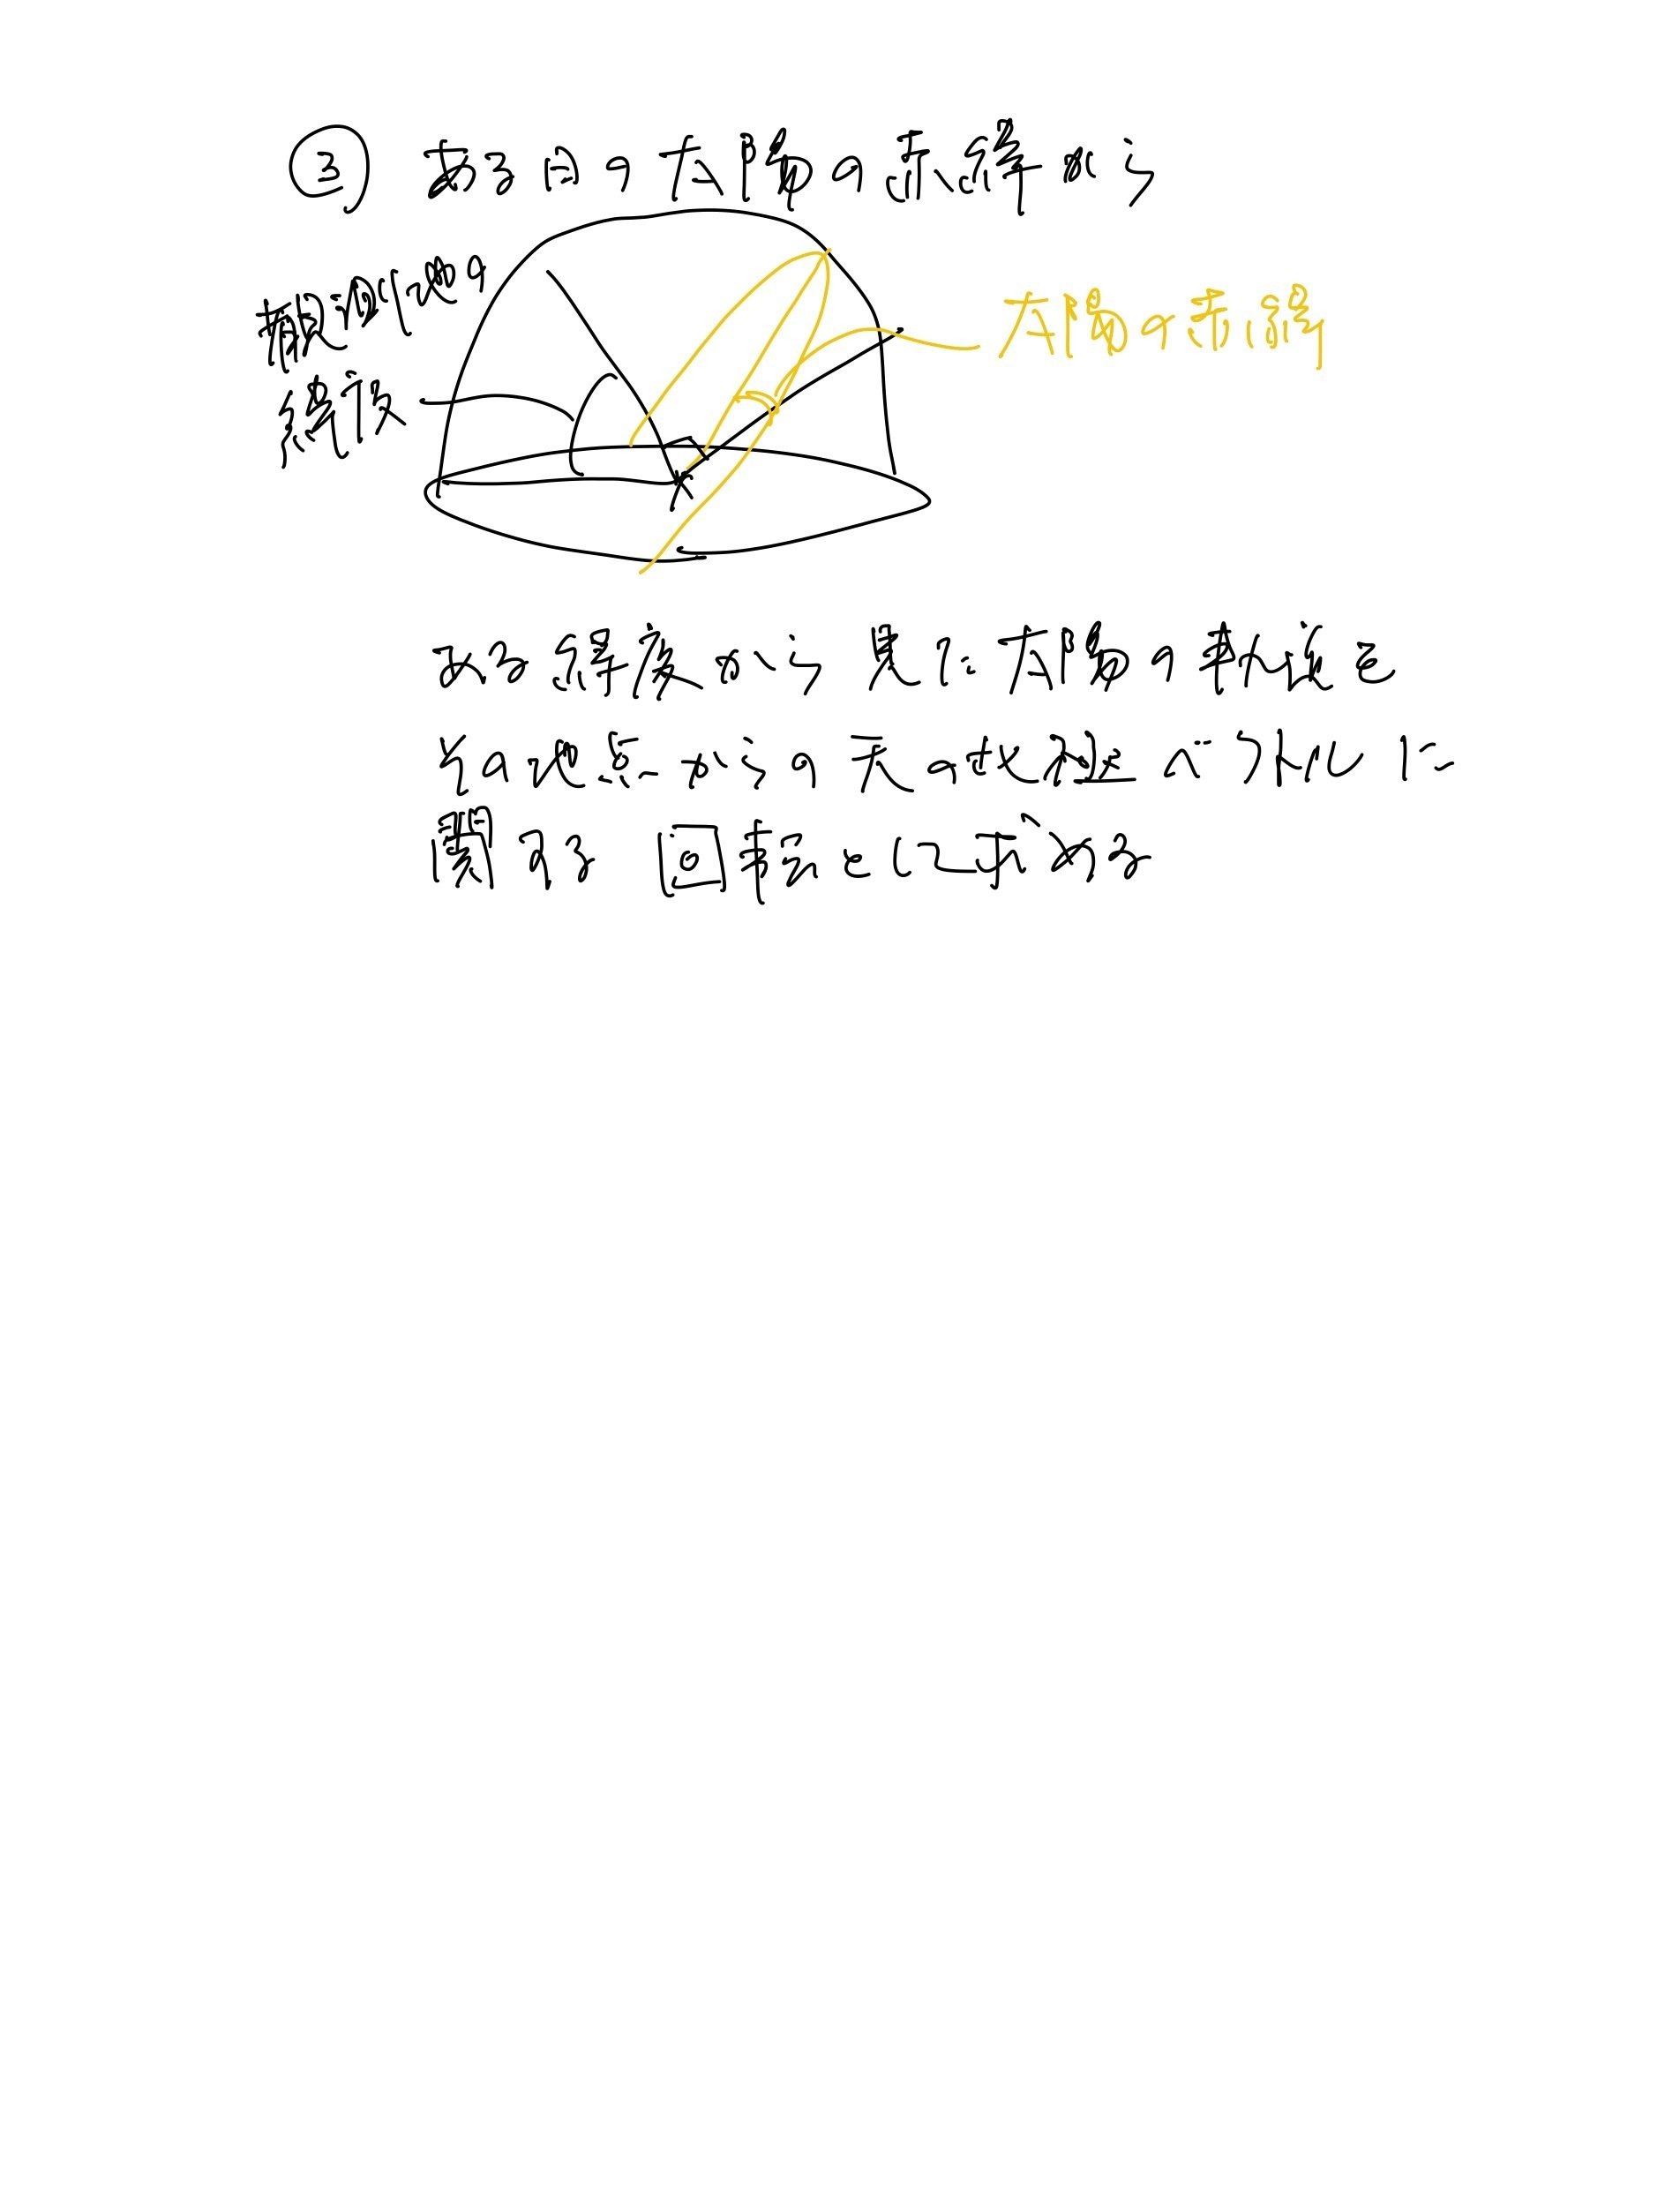 ③ ある日の太陽の赤緯から
観測地の
緯度
太陽の赤緯
ある緯度から見た太陽の軌道を
その地点からの天の北極ベクトルに
関する回転として求める